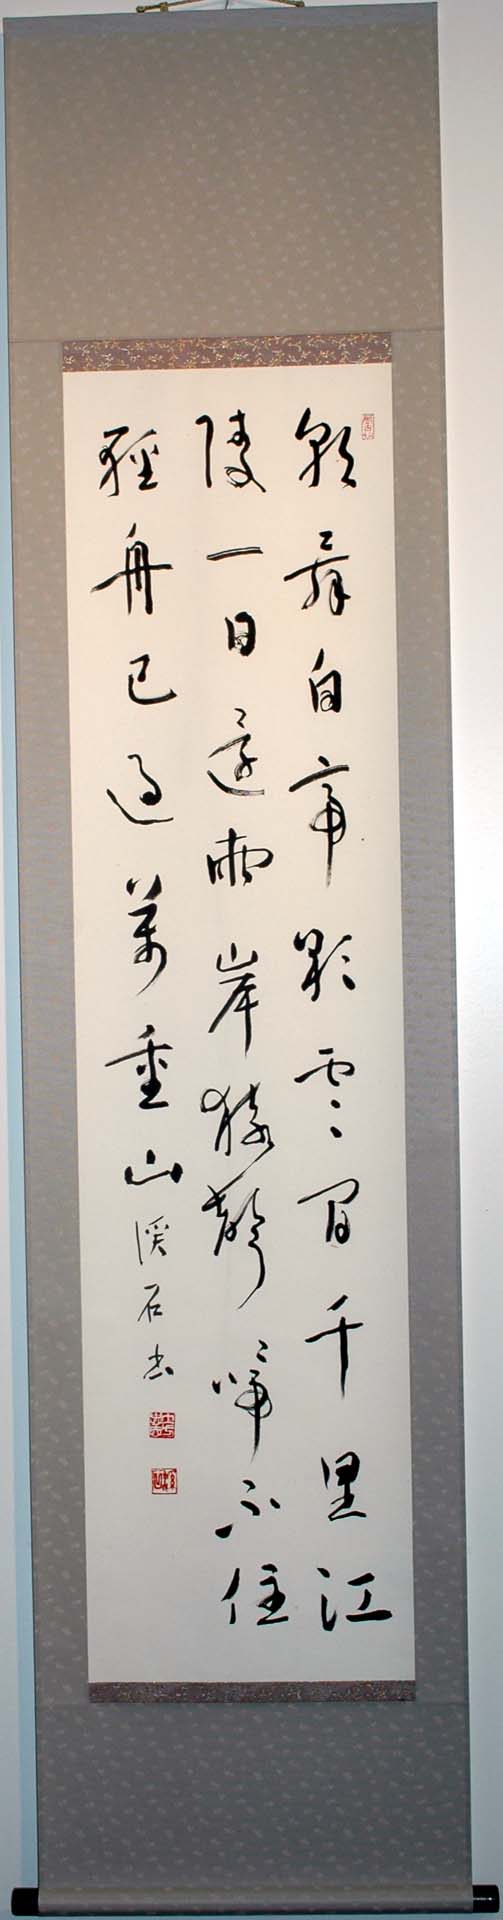 朝辞白帝彩雲間千里江
陵一日還両岸猿聲啼不住
輕舟已過萬重山 渓石書